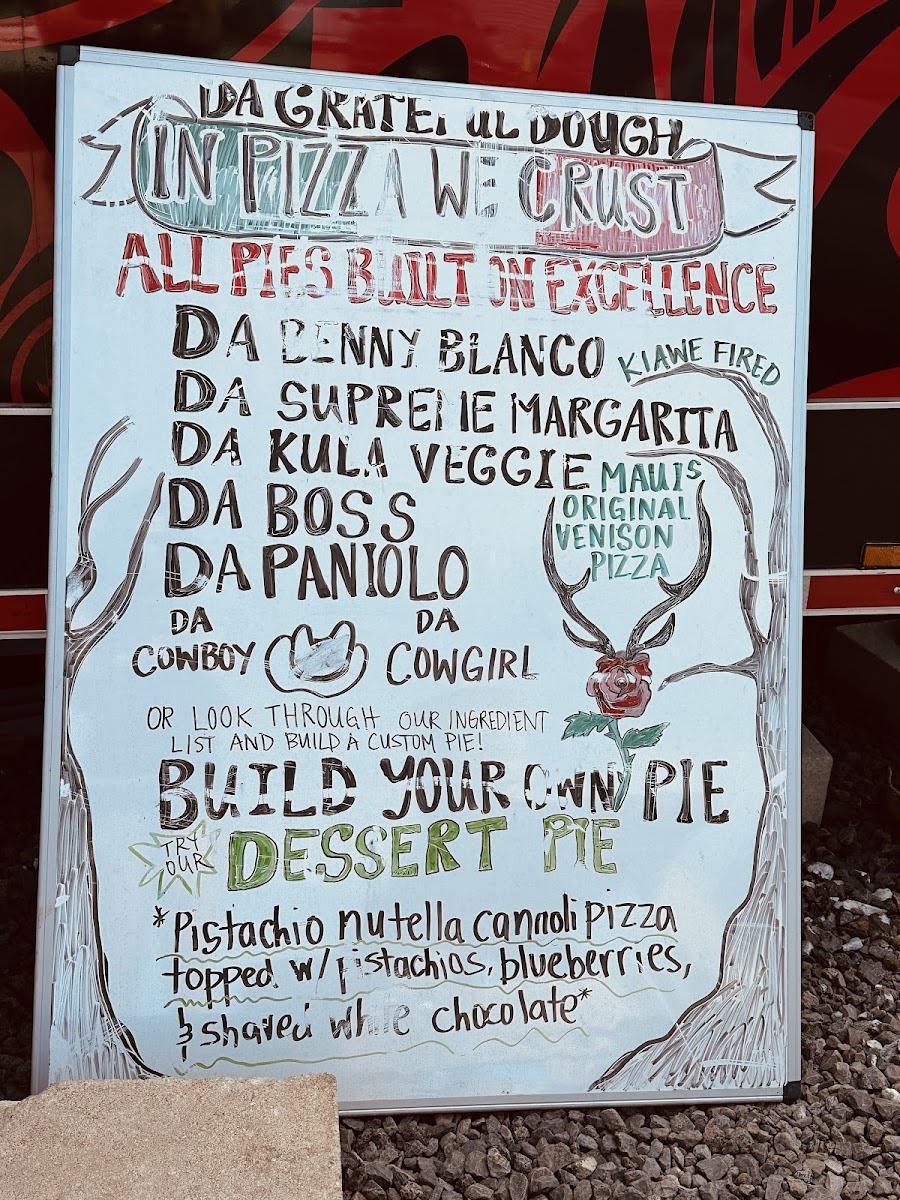 DA GRATEFUL DOUGH
IN PIZZA WE CRUST
ALL PIES BUILT ON EXCELLENCE
DA BENNY BLANCO
KIAWE FIRED
DA SUPREME MARGARITA
DA KULA VEGGIE
DA BOSS
DA PANIOLO
MAUIS
ORIGINAL
VENISON
PIZZA
DA
COWBOY
DA
COWGIRL
OR LOOK THROUGH OUR INGREDIENT
LIST AND BUILD A CUSTOM PIE!
BUILD YOUR OWN PIE
TRY
OUR
DESSERT PIE
*Pistachio nutella cannoli pizza
topped w/ pistachios, blueberries,
& shaved white chocolate*